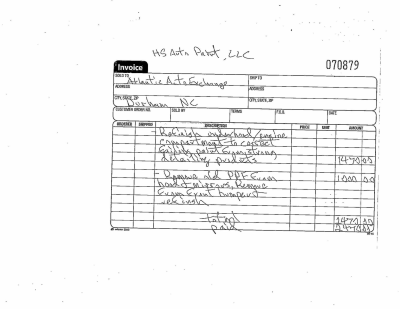 HS Auto Paint, LLC
070879
Invoice
SOLD TO
SHIP TO
Atlantic Auto Exchange
ADDRESS
ADDRESS
CITY, STATE, ZIP
CITY, STATE, ZIP
Durham NC
CUSTOMER ORDER NO.
SOLD BY
TERMS
F.O.B.
DATE
ORDERED SHIPPED DESCRIPTION PRICE UNIT AMOUNT
- Refinish underhood/engine
compartment to correct
paint
detailing products 1470 00
- Remove old PPF from
hood mirrors, Remove
from front bumper
refinish
total 1470 00
paid 2470 00